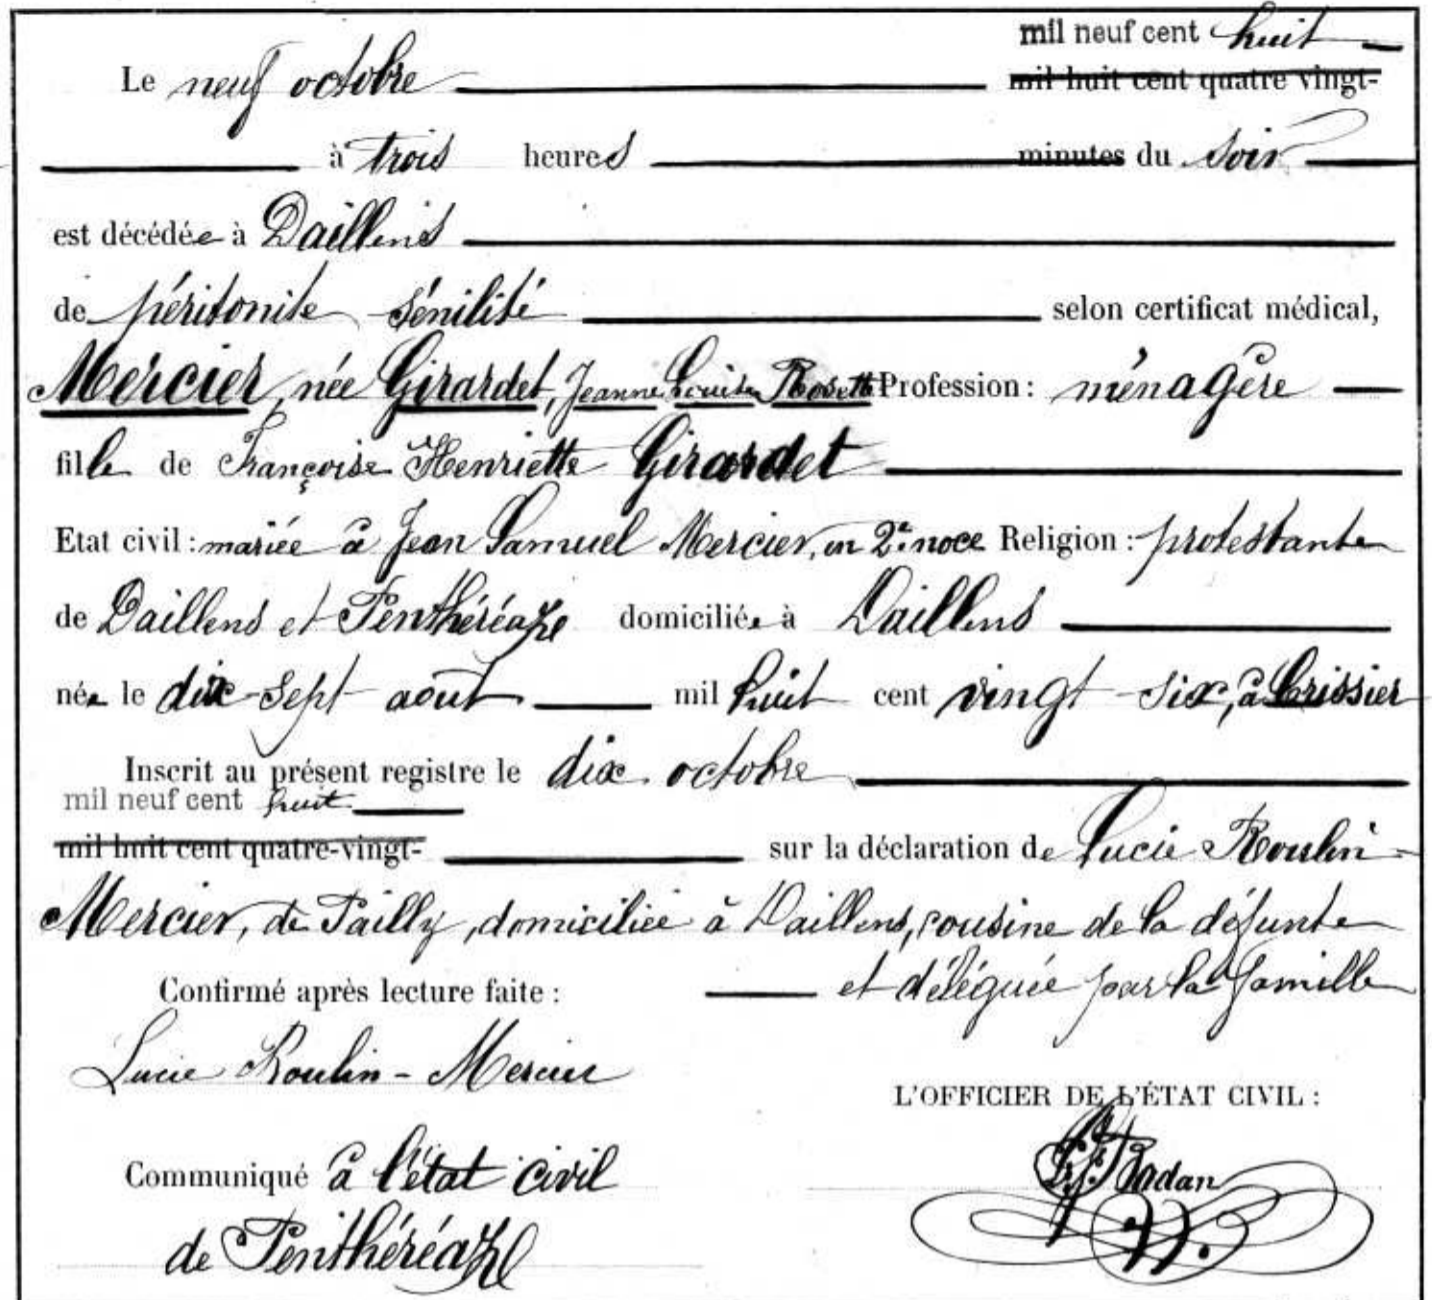 mil neuf cent huit
Le neuf octobre mil huit cent quatre vingt-
à trois heures minutes du soir
est décédée à Daillens
de péritonite sénilité selon certificat médical,
Mercier, née Girardet, Jeanne Louise Rosette Profession : ménagère
fille de Françoise Henriette Girardet
Etat civil : mariée à Jean Samuel Mercier, en 2e. noce Religion : protestante
de Daillens et Penthéréaz domiciliée à Daillens
née le dix-sept août mil huit cent vingt-six, à Crissier
Inscrit au présent registre le dix octobre
mil neuf cent huit
mil huit cent quatre-vingt- sur la déclaration de Lucie Roulin-
Mercier, de Pailly, domiciliée à Daillens, cousine de la défunte
et déléguée par la famille
Confirmé après lecture faite :
Lucie Roulin - Mercier
L'OFFICIER DE L'ÉTAT CIVIL :
Communiqué à l'état civil
Badan
de Penthéréaz